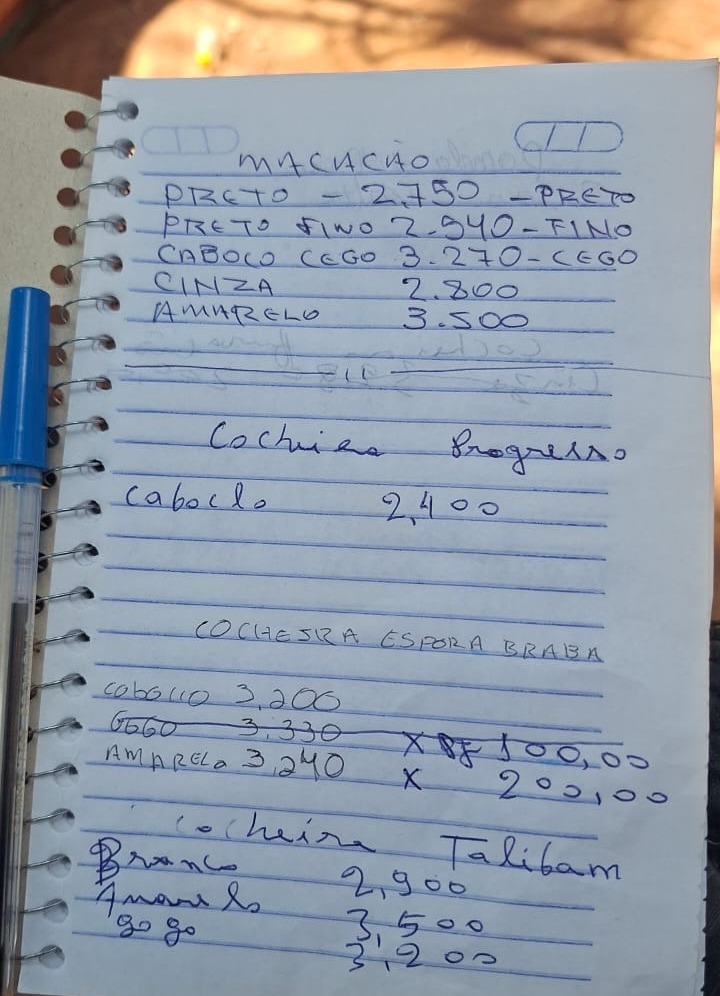 MACACÃO
PRETO - 2.750 - PRETO
PRETO FINO 2.940 - FINO
CABOCO CEGO 3.270 - CEGO
CINZA 2.800
AMARELO 3.500
Cocheira Progresso
Caboclo 2,400
COCHEIRA ESPORA BRABA
3,200
GOGO 3.330 X 100,00
AMARELO 3,240 X 200,00
Cocheira Talibam
Branco 2,900
Amarelo 3,500
gogo 3,200